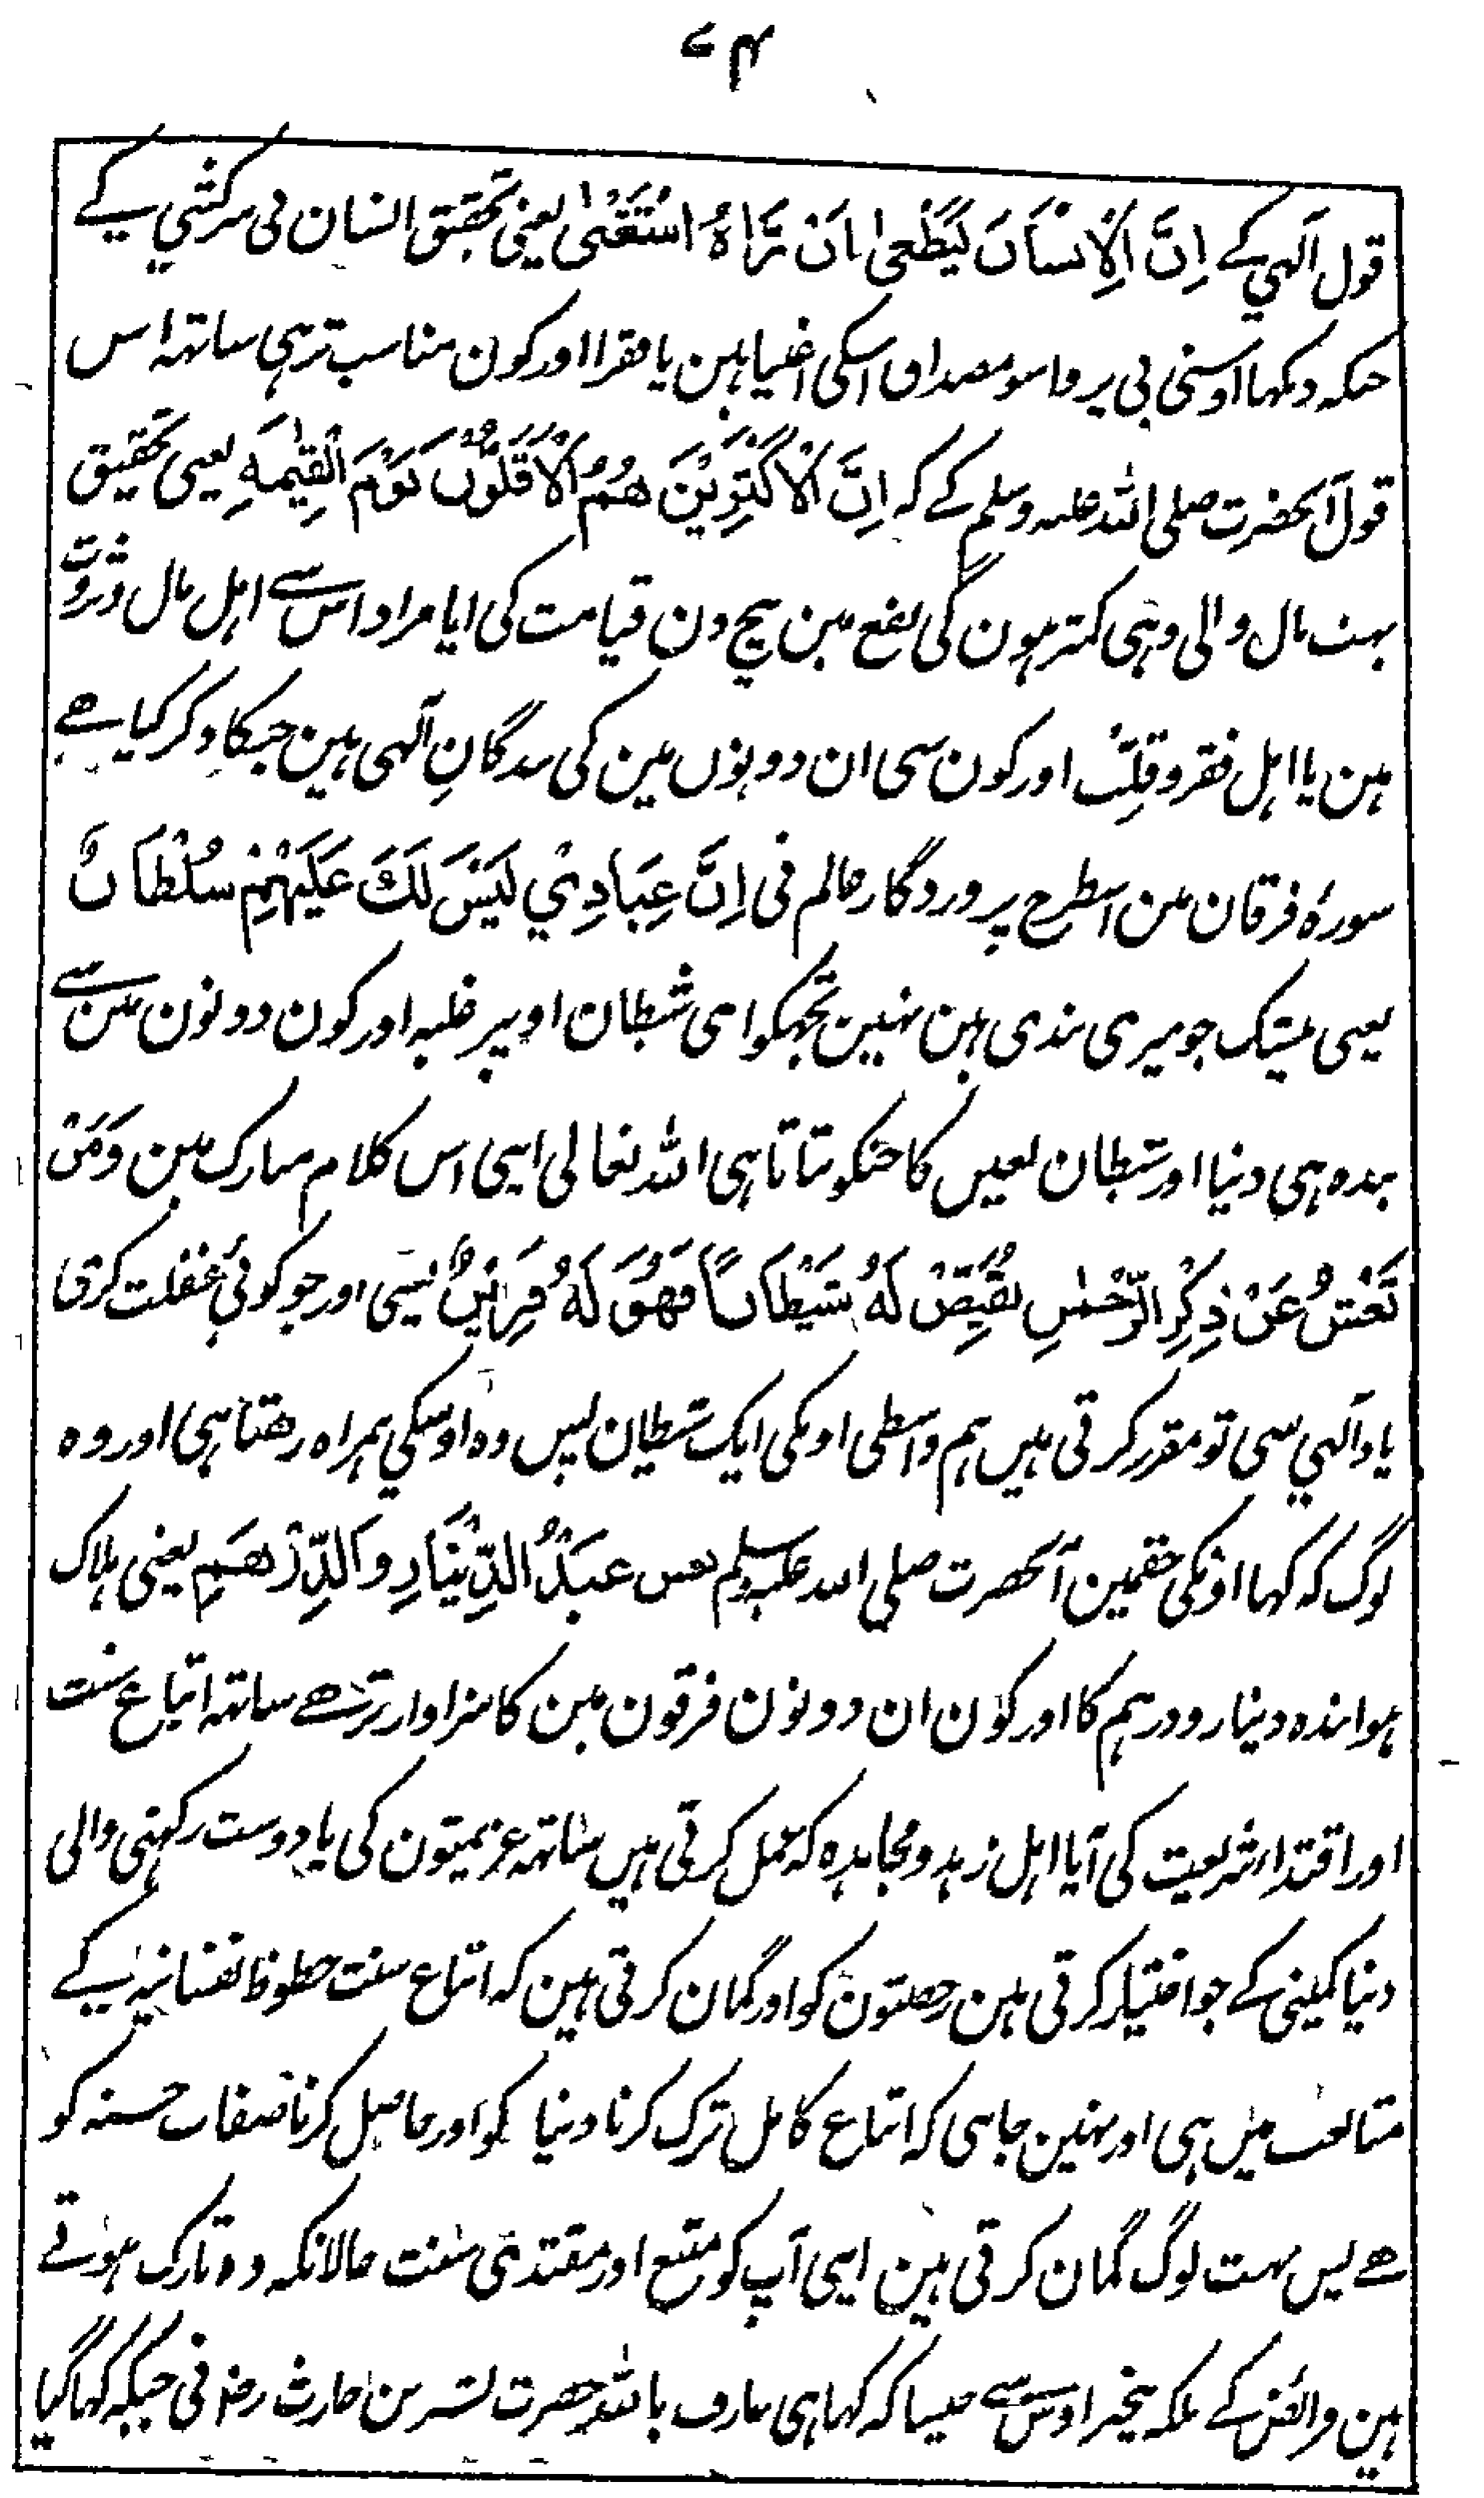 ۷۴
قول آلہي کے اِنَّ الْاِنْسَانَ لَيَطْغٰى اَنْ رَّاٰهُ اسْتَغْنٰى يعنی تحقيق انسان نی سرکشي کے
جبکہ دیکھا اوسنی بی پروا سو مصداق اسکی اغنیا ہین یا فقرا اور کون مناسب تر ہی ساتہہ اس
قول آنحضرت صلی اللہ علیہ وسلم کے کہ اِنَّ الْاَكْثَرِيْنَ هُمُ الْاَقَلُّوْنَ يَوْمَ الْقِيٰمَةِ یعنی تحقیق
بہت مال والی وہی کمتر ہون گی نفع مین بیچ دن قیامت کی ایا مراد اس سے اہل مال وثروت
ہین یا اہل فقر وقلت اور کون سی ان دونوں مین کی بندگانِ آلہی ہین جنکا ذکر کیا ہے
سورۂ فرقان مین اسطرح پروردگار عالم نی اِنَّ عِبَادِيْ لَيْسَ لَكَ عَلَيْهِمْ سُلْطَانٌ
یعنی بیشک جو میری بندی ہین نہین تجہکو امی شیطان اوپر غلبہ اور کون دونون مین سے
بندہ ہی دنیا اور شیطان لعین کا جنکو بتاتا ہی اللہ تعالی اپنی اس کلام مبارک مین وَمَنْ
يَعْشُ عَنْ ذِكْرِ الرَّحْمٰنِ نُقَيِّضْ لَهُ شَيْطَانًا فَهُوَ لَهُ قَرِيْنٌ یعنی اور جو کوئی غفلت کری
یاد آلہي سی تو مقرر کرتی ہیں ہم واسطی اوسکی ایک شیطان پس وہ اوسکي ہمراہ رہتا ہی اور وہ
لوگ کہ کہا اونکی حقمین آنحضرت صلی اللہ علیہ وسلم تعس عبدُ الدِّيْنَارِ وَالدِّرْهَمِ یعنی ہلاک
ہوا بندہ دینار ودرہم کا اور کون ان دونون فرقون مین کا سزاوار تر ہے ساتہہ اتباع سنت
اور اقتدار شریعت کی آیا اہل زہد ومجاہدہ کہ عمل کرتی ہیں ساتہہ عزیمتون کی یا دوست رکہنی والی
دنیا کمینی کے جو اختیار کرتی ہین رخصتون کو اور گمان کرتی ہین کہ اتباع سنت حظوظ نفسانیہ کے
متابعت میں ہی اور نہین جانتی کہ اتباع کامل ترک کرنا دنیا کو اور حاصل کرنا صفات حسنہ کو
ہے پس بہت لوگ گمان کرتی ہین اپنی آپ کو متبع اور مقتدی سنت حالانکہ وہ تارک ہوتے
ہین فرائض کے بلکہ بیخبر اوس سے جیسا کہ کہا ہی عارف باللہ حضرت بشر بن حارث رض نی جبکہ کہا گیا